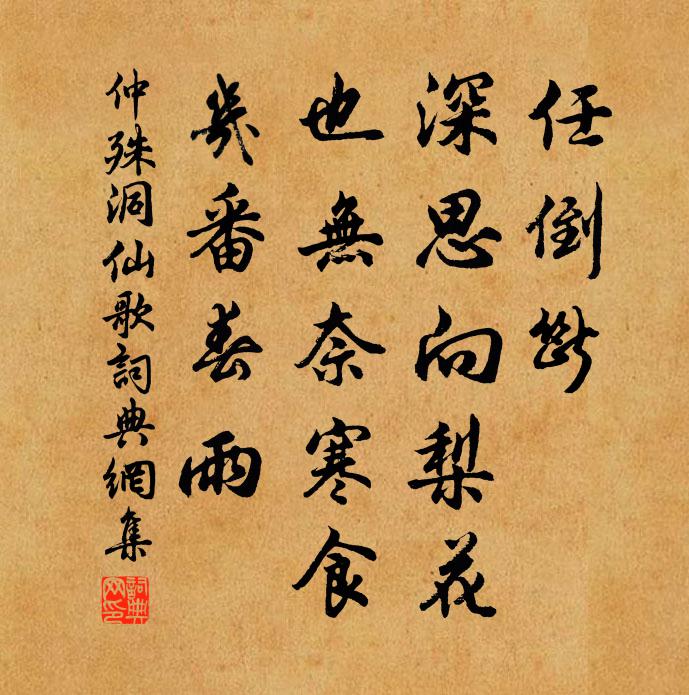 任倒斷
深思向梨花
也無奈寒食
幾番春雨
仲殊洞仙歌詞典網集
詞典
网印